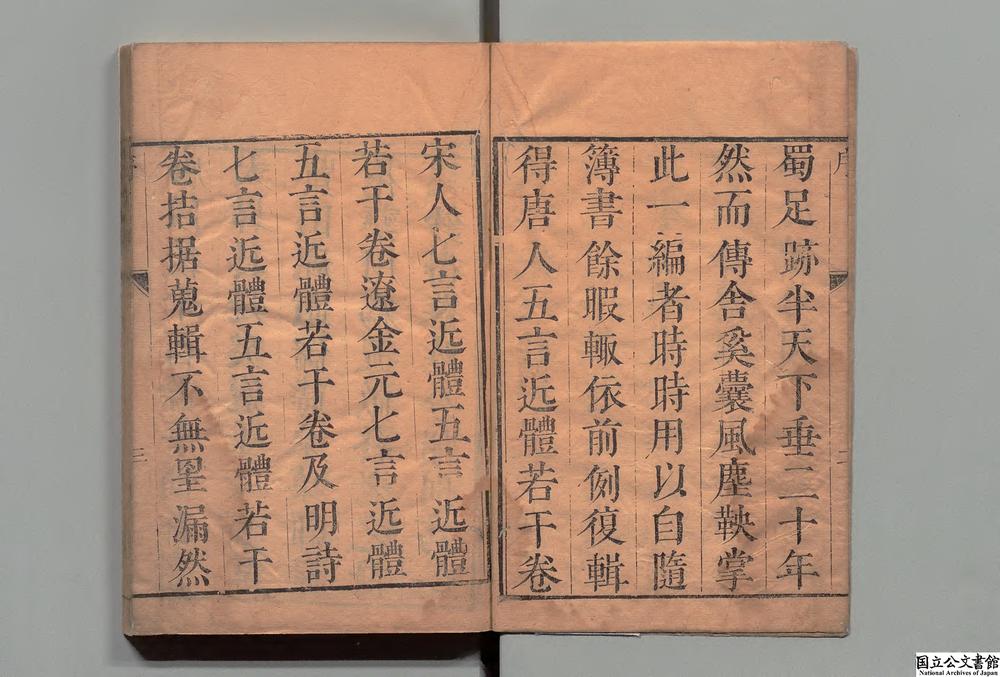 序
蜀足跡半天下垂二十年
然而傳舍奚囊風塵鞅掌
此一編者時時用以自隨
簿書餘暇輙依前例復輯
得唐人五言近體若干卷
二
宋人七言近體五言近體
若干卷遼金元七言近體
五言近體若干卷及明詩
七言近體五言近體若干
卷拮据蒐輯不無罣漏然
三
国立公文書館
National Archives of Japan